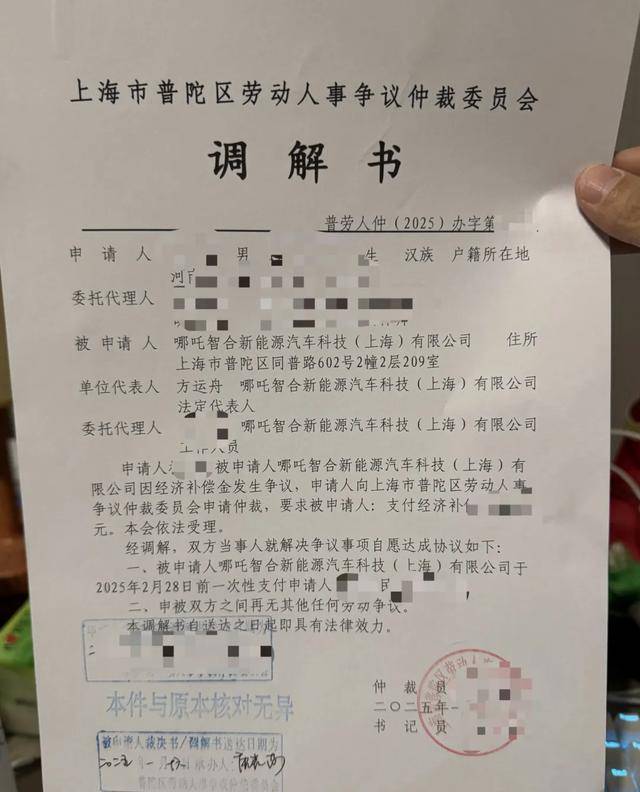 上海市普陀区劳动人事争议仲裁委员会
调解书
普劳人仲（2025）办字第
申请人 男 生 汉族 户籍所在地
河
委托代理人
被申请人 哪吒智合新能源汽车科技（上海）有限公司 住所
上海市普陀区同普路602号2幢2层209室
单位代表人 方运舟 哪吒智合新能源汽车科技（上海）有限公司
法定代表人
委托代理人 哪吒智合新能源汽车科技（上海）有限公司
工作人员
申请人 被申请人哪吒智合新能源汽车科技（上海）有
限公司因经济补偿金发生争议，申请人向上海市普陀区劳动人事
争议仲裁委员会申请仲裁，要求被申请人：支付经济补
元。本会依法受理。
经调解，双方当事人就解决争议事项自愿达成协议如下：
一、被申请人哪吒智合新能源汽车科技（上海）有限公司于
2025年2月28日前一次性支付申请人 民
二、申被双方之间再无其他任何劳动争议。
本调解书自送达之日起即具有法律效力。
仲裁员
二〇二五年一
书记员
本件与原本核对无异
被申请人裁决书/调解书送达日期为
二〇二五年一月 承办人：
普陀区劳动人事争议仲裁委员会